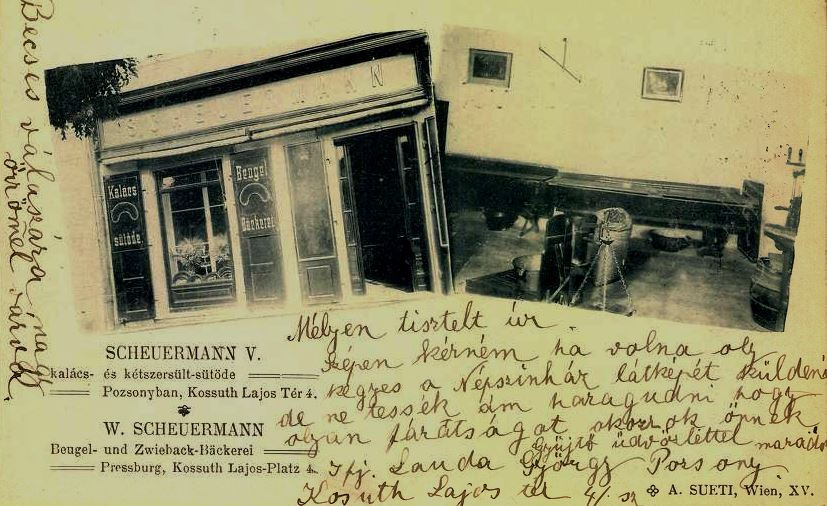 SCHEUERMANN
Kalács
sütöde.
Beugel
Bäckerei
SCHEUERMANN V.
kalács- és kétszersült-sütöde
Pozsonyban, Kossuth Lajos Tér 4.
W. SCHEUERMANN
Beugel- und Zwieback-Bäckerei
Pressburg, Kossuth Lajos-Platz 4.
Mélyen tisztelt úr
szépen kérném ha volna oly
kegyes a Népszinház látképét küldeni
de ne tessék ám haragudni hogy
olyan fáratságot okozok önnek
Gyüjtő üdvözlettel maradok
Ifj. Lauda György Pozsony
Kosuth Lajos tér 4/. sz
Becses válaszára nagy
örömel várva.
A. SUETI, Wien, XV.